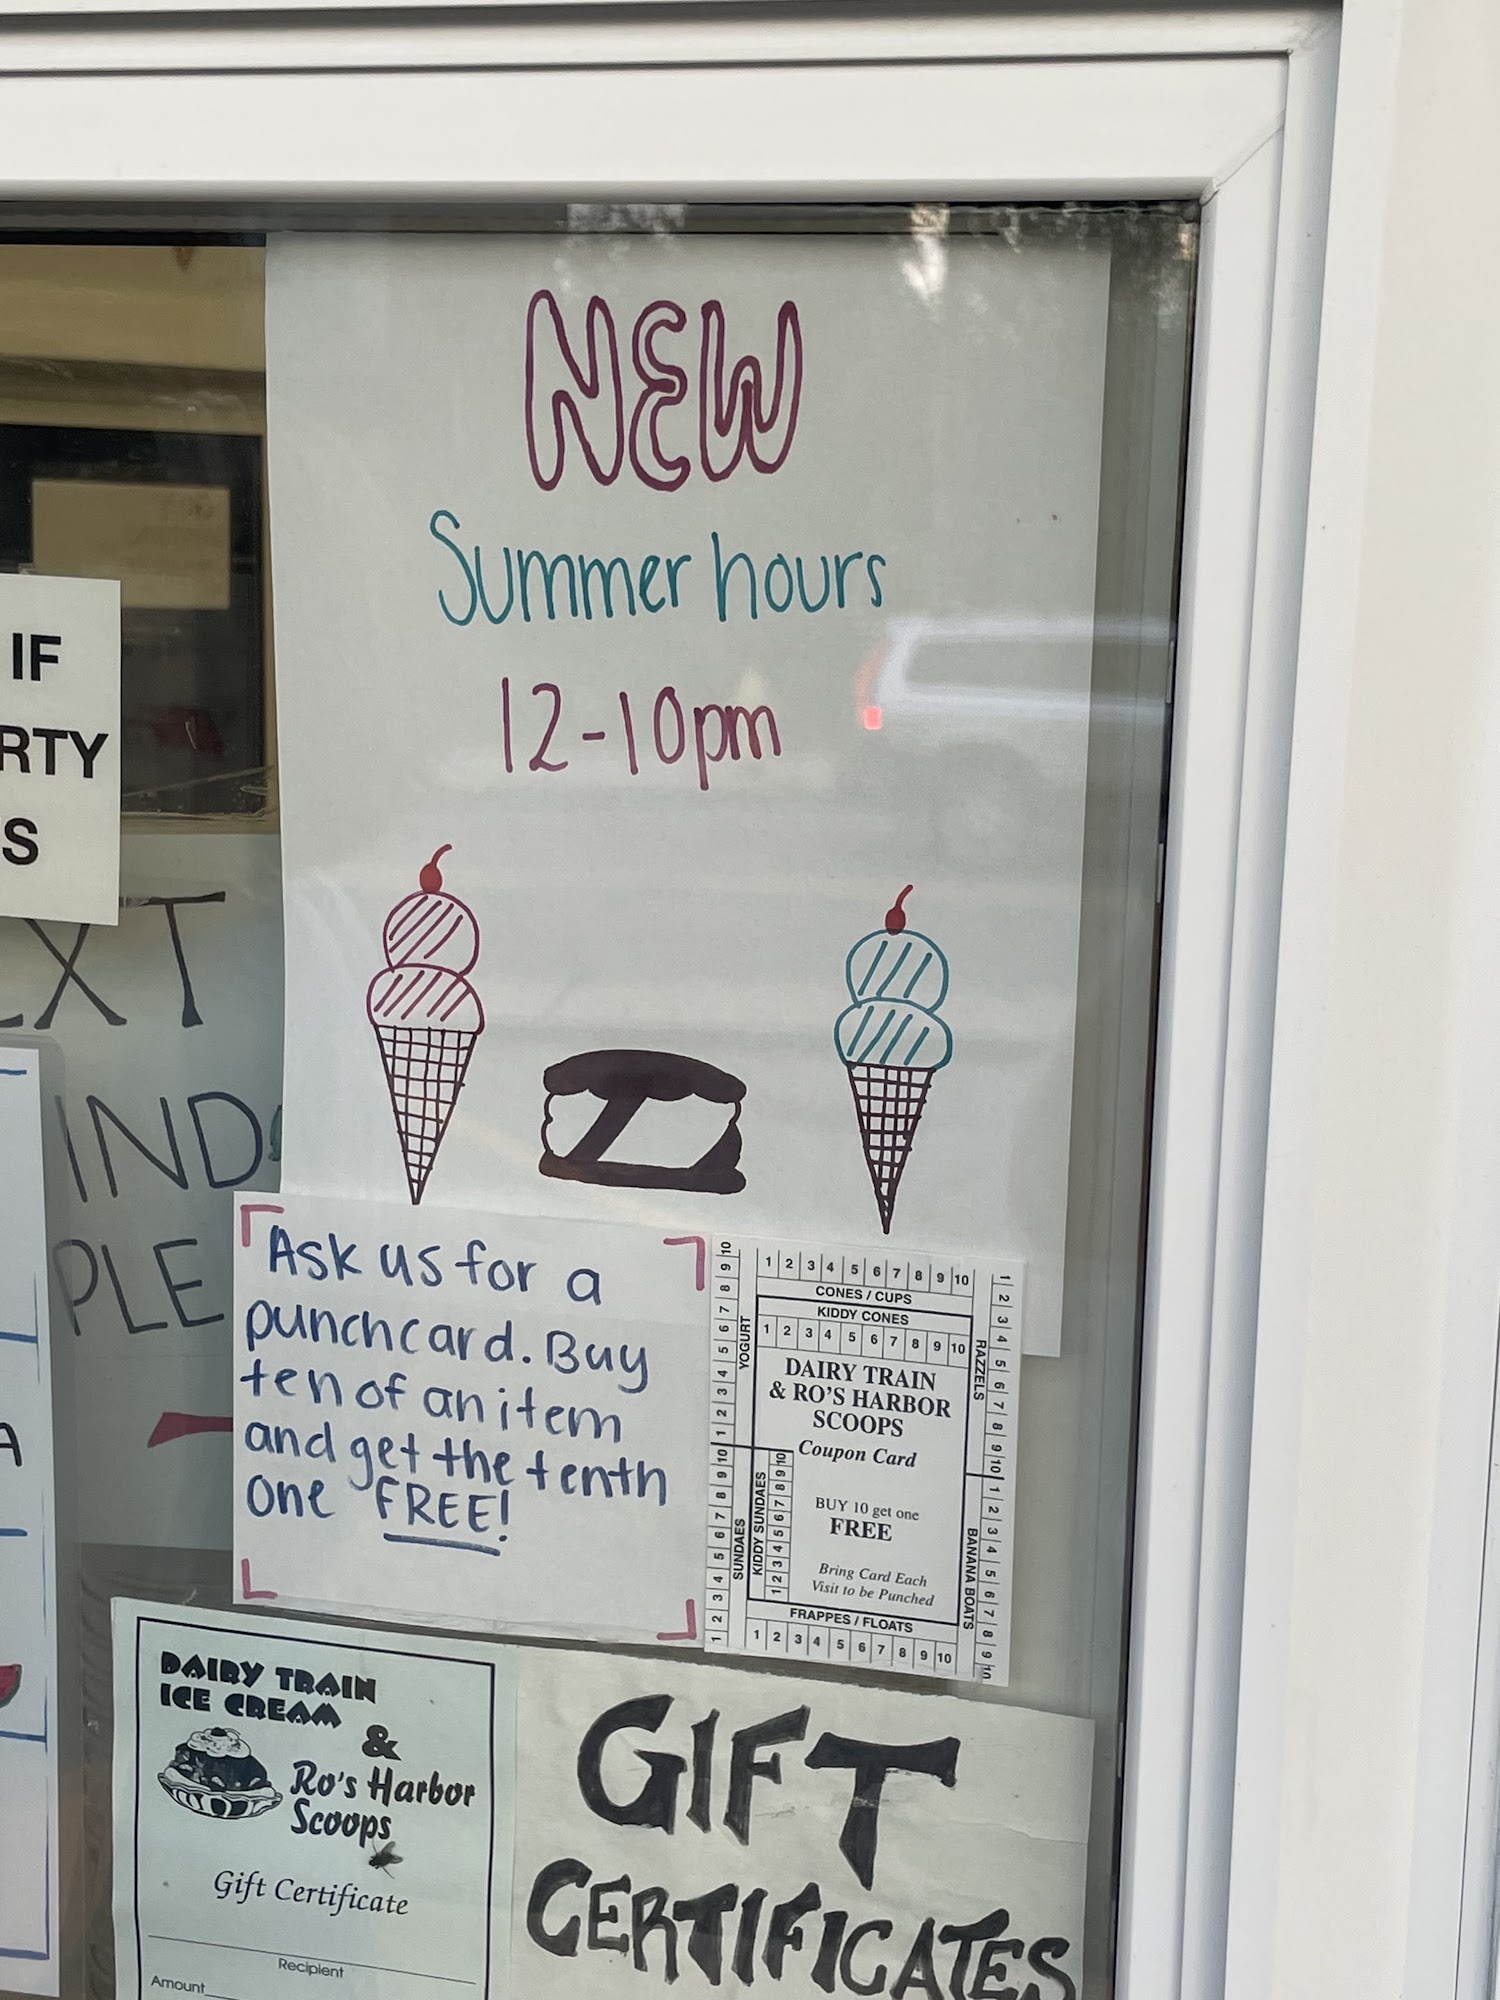 NEW
Summer hours
12-10pm
IF
RTY
S
EXT
IND
PLE
A
Ask us for a
punchcard. Buy
ten of an item
and get the tenth
one FREE!
1 2 3 4 5 6 7 8 9 10
CONES / CUPS
KIDDY CONES
1 2 3 4 5 6 7 8 9 10
YOGURT
1 2 3 4 5 6 7 8 9 10
RAZZELS
1 2 3 4 5 6 7 8 9 10
DAIRY TRAIN
& RO'S HARBOR
SCOOPS
Coupon Card
BUY 10 get one
FREE
Bring Card Each
Visit to be Punched
SUNDAES
1 2 3 4 5 6 7 8 9 10
KIDDY SUNDAES
1 2 3 4 5 6 7 8 9 10
BANANA BOATS
1 2 3 4 5 6 7 8 9 10
FRAPPES / FLOATS
1 2 3 4 5 6 7 8 9 10
DAIRY TRAIN
ICE CREAM
&
Ro's Harbor
Scoops
Gift Certificate
Recipient
Amount
GIFT
CERTIFICATES